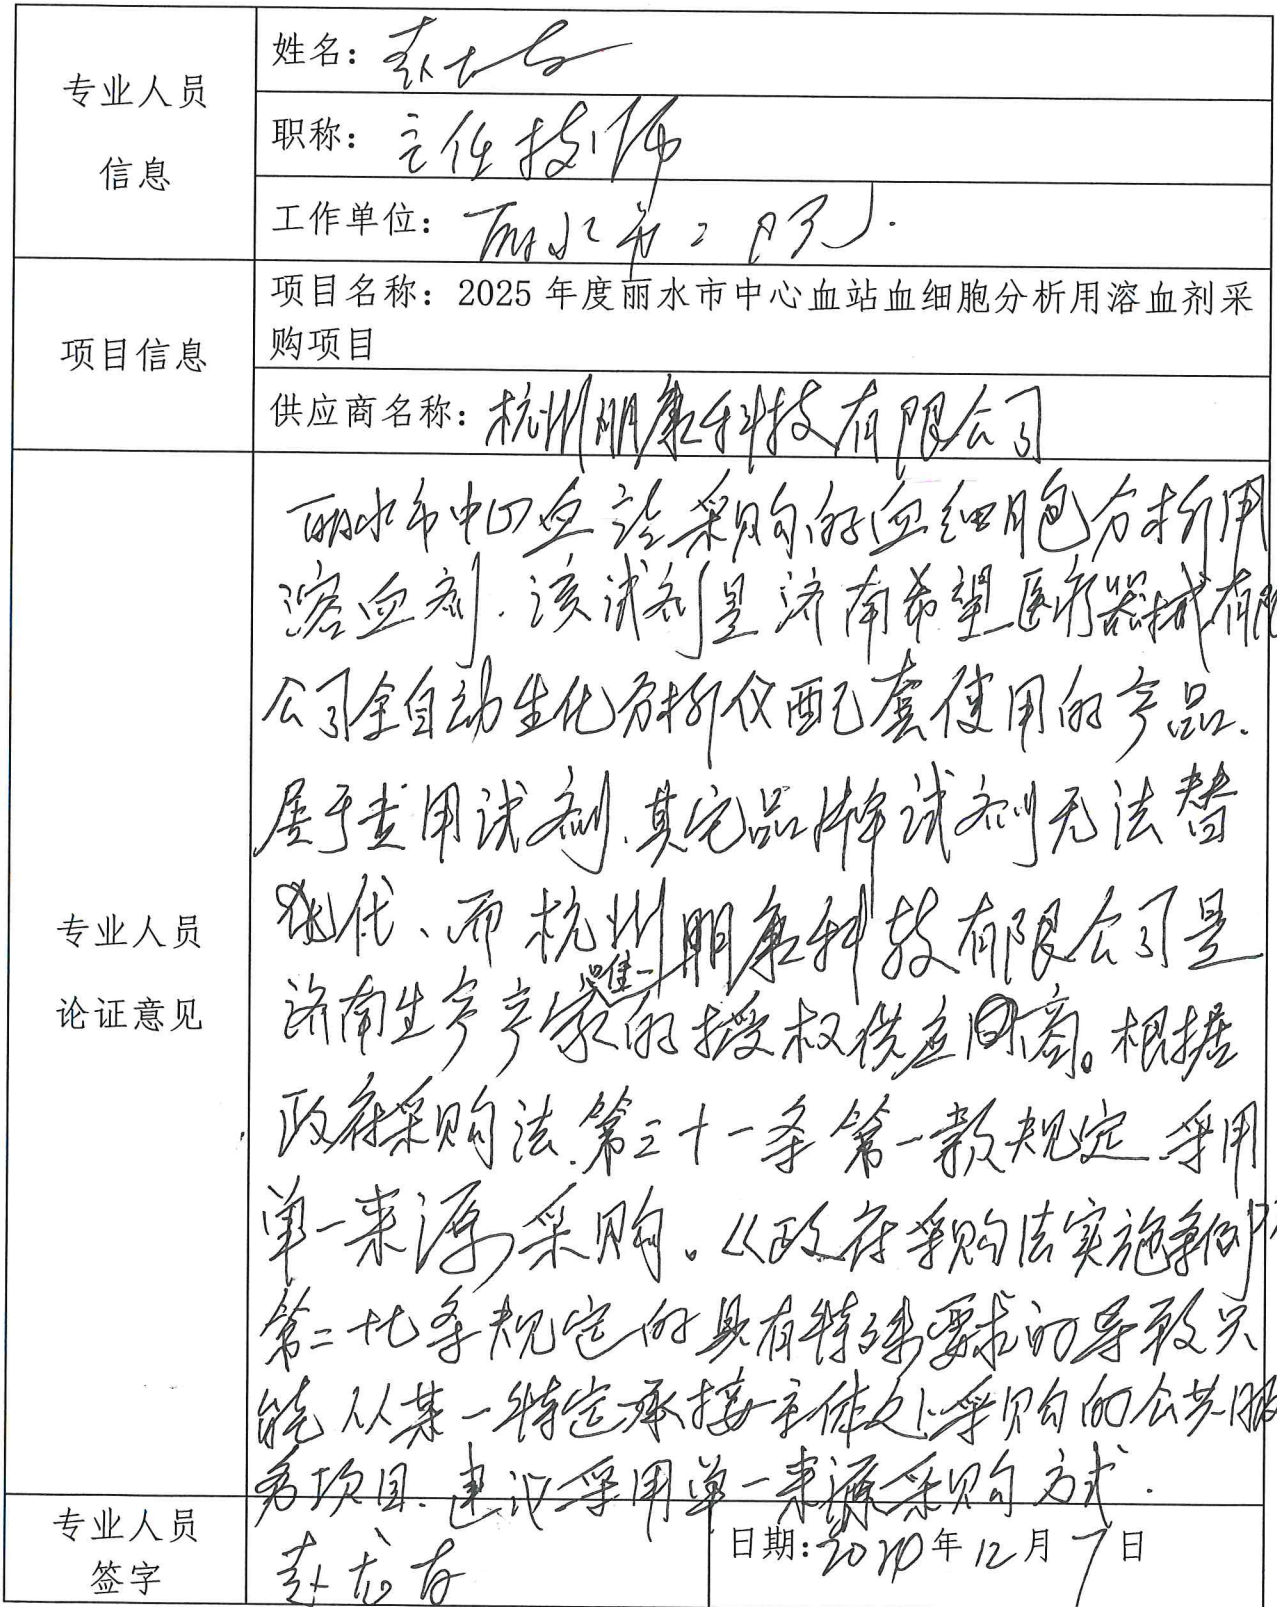 专业人员
信息
姓名：赵
职称：主任技师
工作单位：丽水市二院
项目信息
项目名称：2025 年度丽水市中心血站血细胞分析用溶血剂采
购项目
供应商名称：杭州朋康科技有限公司
专业人员
论证意见
丽水市中心血站采购的血细胞分析用
溶血剂．该试剂是济南希望医疗器械有限
公司全自动生化分析仪配套使用的产品．
属于专用试剂、其它品牌试剂无法替
代、而杭州朋康科技有限公司是
济南生产家唯一的授权供应商。根据
政府采购法．第三十一条第一款规定 采用
单一来源采购。《政府采购法实施条例》
第二十七条规定的具有特殊要求的导致只
能从某一特定承接主体处采购的公共服
务项目．建议采用单一来源采购方式．
专业人员
签字
赵
日期：年12月7日